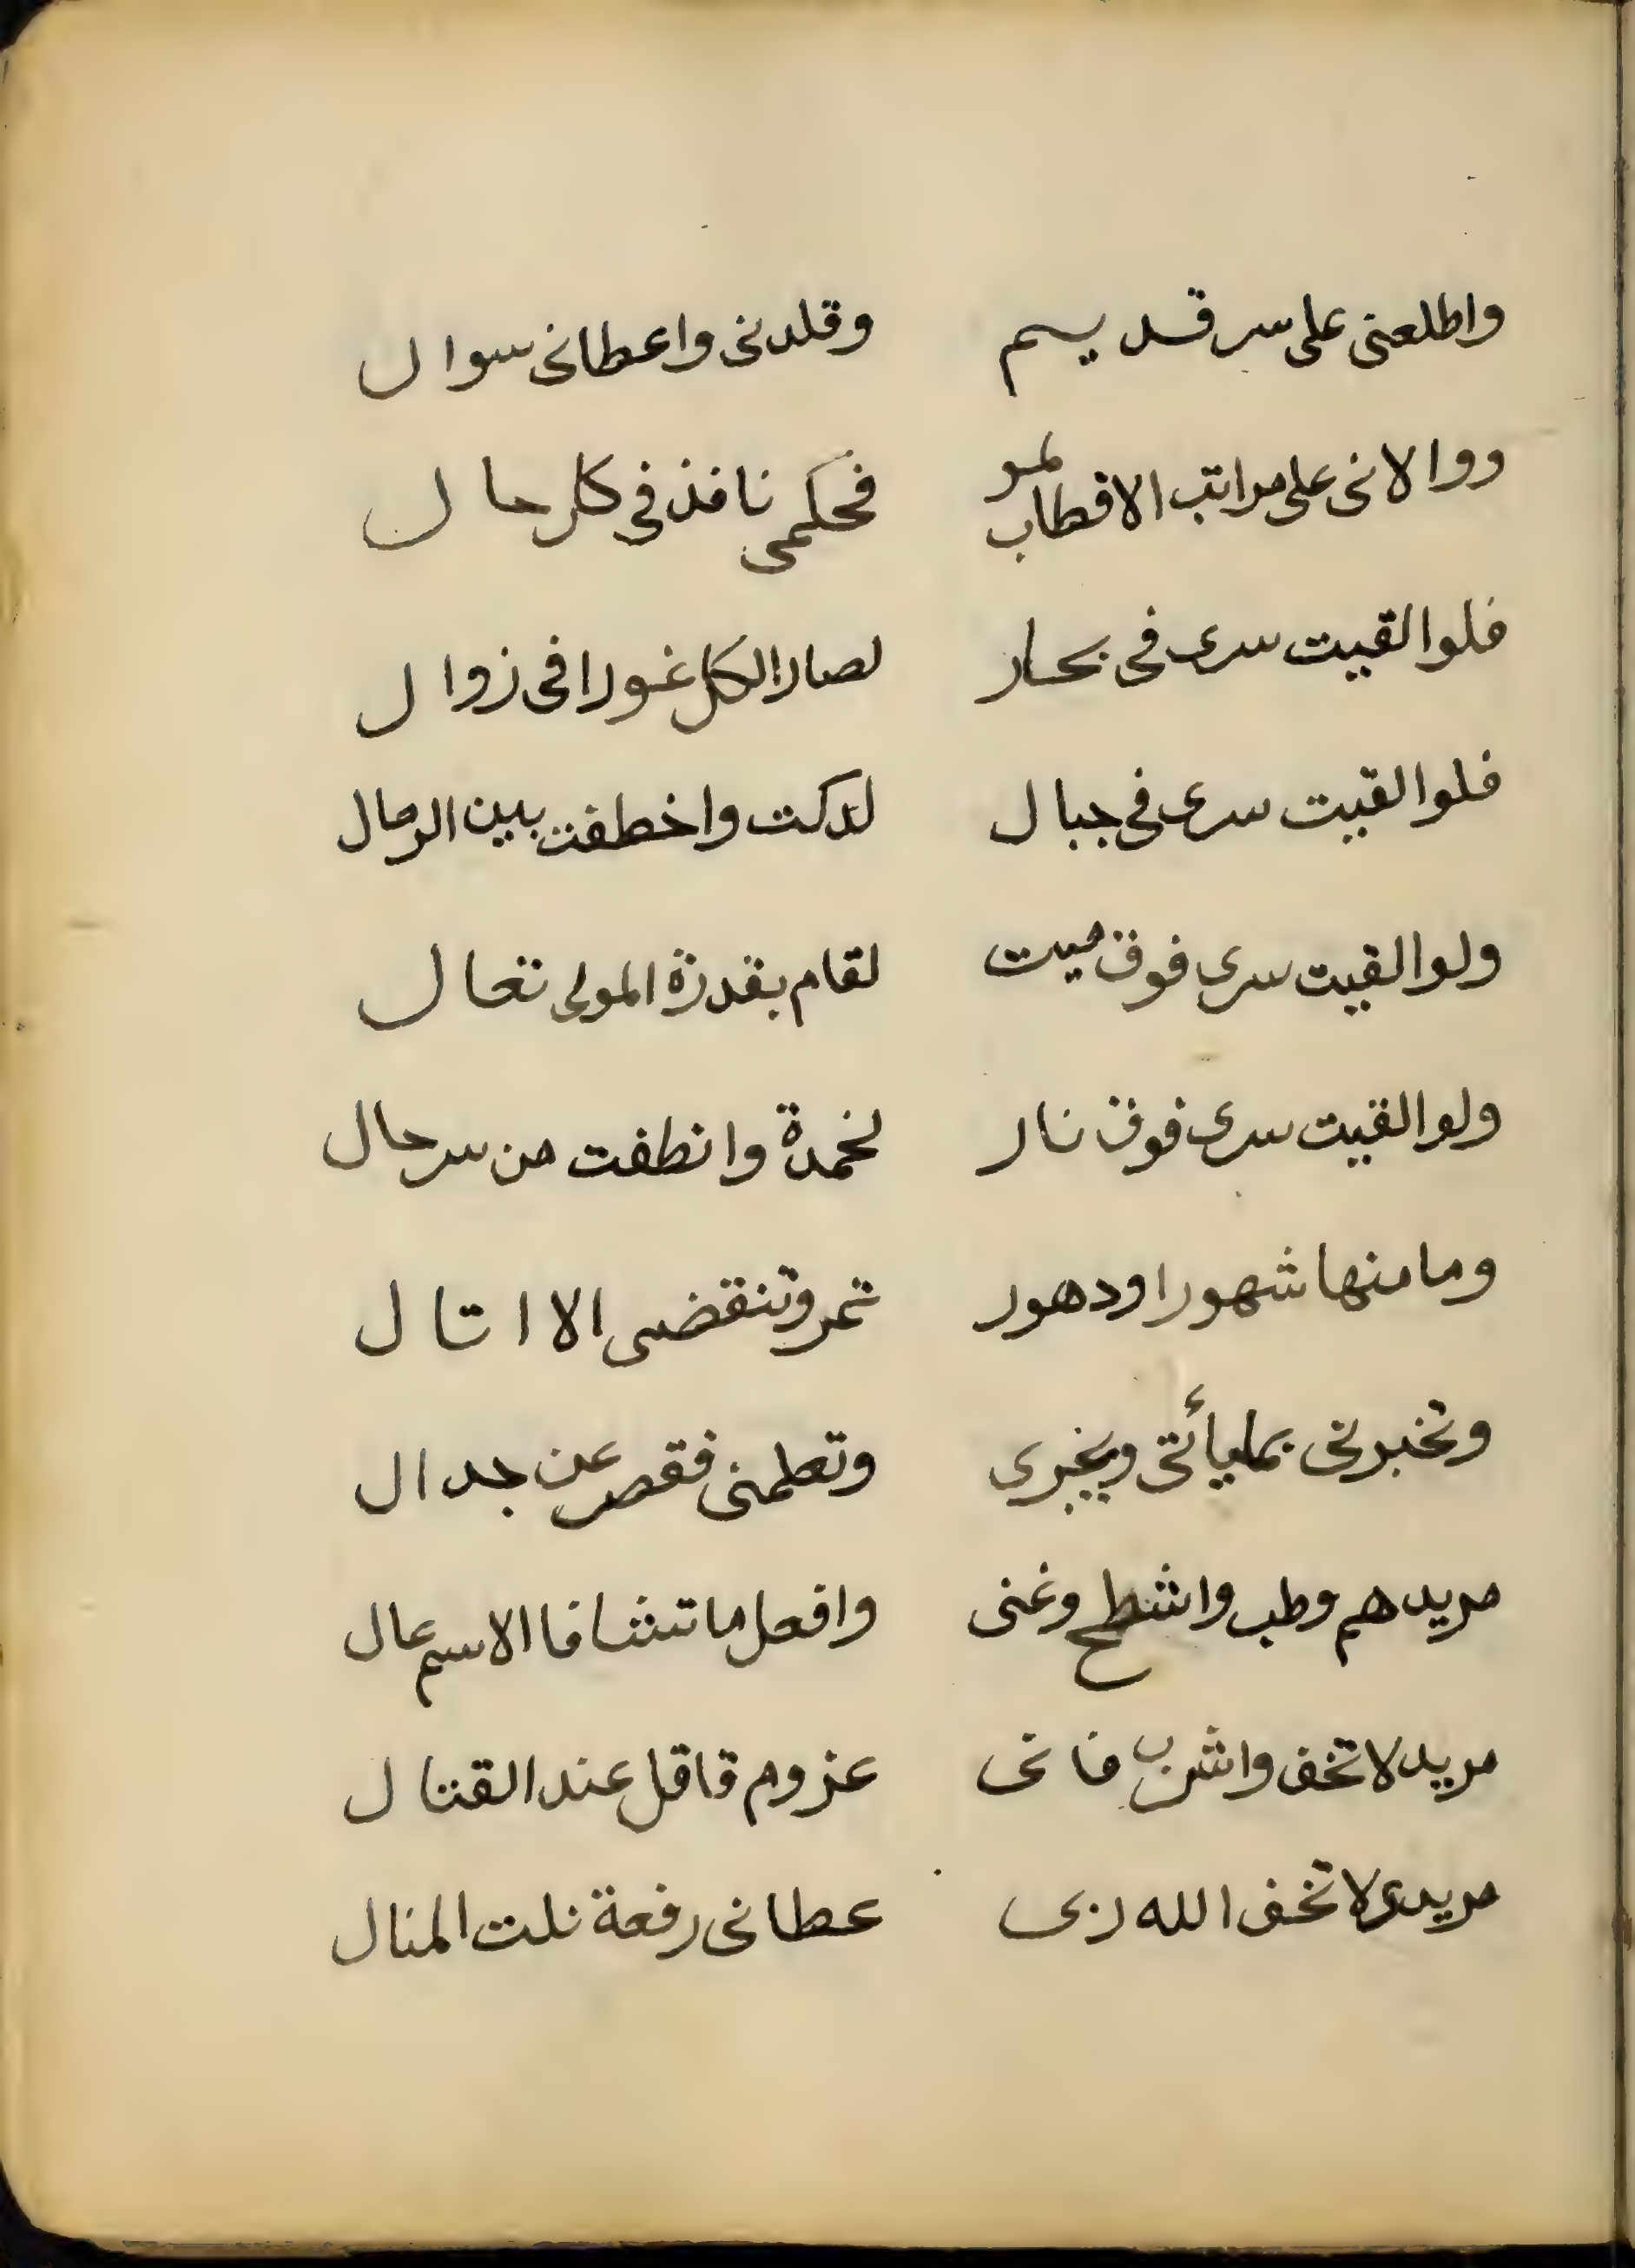 واطلعنى على سر قديم وقلدنى واعطانى سوال
ووالانى على مراتب الاقطاب لمو فحكمى نافذ فى كل حال
فلوا لقيت سرى فى بحار لصار الكل غورا فى زوال
فلوا لقيت سرى فى جبال لدكت واخطفت بين الرمال
ولوا لقيت سرى فوق ميت لقام بقدرة المولى تعال
ولوا لقيت سرى فوق نار لخمدة وانطفت من سر حال
وما منها شهورا ودهور تمر وتنقضى الا اتال
وتخبرنى بما يأتى ويجرى وتعلمنى فقصر عن جدال
مريد هم وطب واشطح وغنى وافعل ما تشا فا الاسم عال
مريد لا تخف واشرب فانى عزوم قاقل عند القتال
مريدى لا تخف الله ربى عطانى رفعة نلت المنال